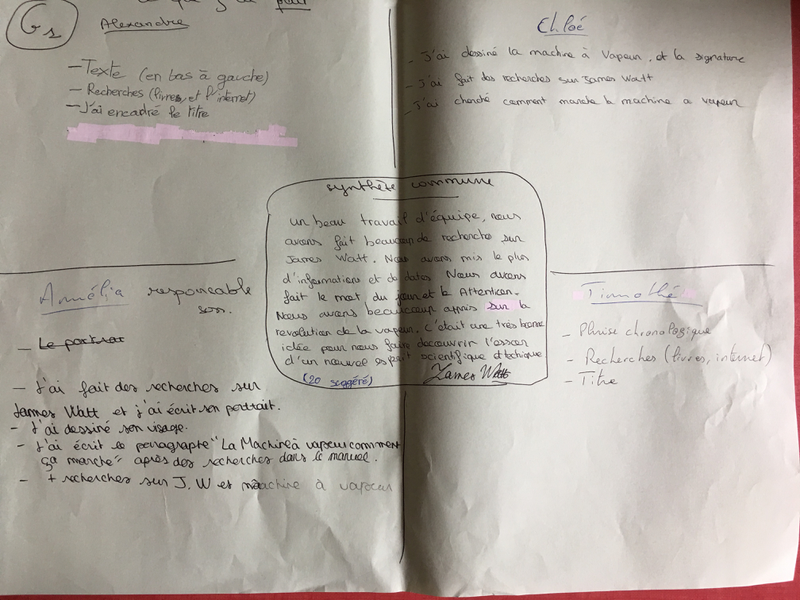 G5
ce que j'ai fait
Alexandre
- Texte (en bas à gauche)
- Recherches (livres, et l'internet)
- J'ai encadré le titre
Chloé
- J'ai dessiné la machine à Vapeur, et la signature
- J'ai fait des recherches sur James Watt
- J'ai cherché comment marche la machine a vapeur
synthèse commune
un beau travail d'équipe, nous
avons fait beaucoup de recherche sur
James Watt. Nous avons mis le plus
d'informations et de dates. Nous avons
fait le mot du jour et le Attention.
Nous avons beaucoup appris sur la
revolution de la vapeur. C'était une très bonne
idée pour nous faire découvrir l'essor
d'un nouvel esprit scientifique et technique
(20 suggéré)
James Watt
Annélia responsable
son.
- Le portrait
- J'ai fait des recherches sur
James Watt et j'ai écrit son portrait.
- J'ai dessiné son visage.
- J'ai écrit le paragraphe "La Machine à vapeur comment
ça marche" après des recherches dans le manuel.
- + recherches sur J.W et machine à vapeur
Timothé
- Phrise chronologique
- Recherches (livres, internet)
- Titre